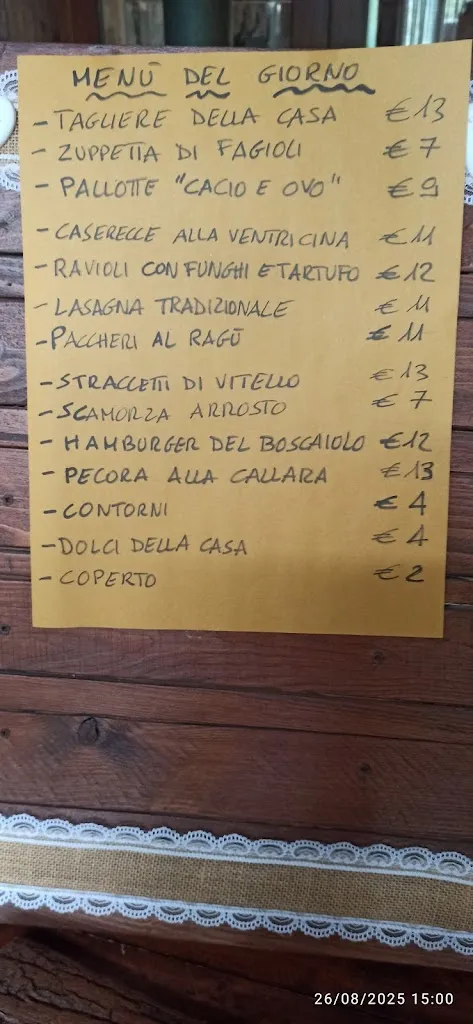 MENÙ DEL GIORNO
- TAGLIERE DELLA CASA €13
- ZUPPETTA DI FAGIOLI €7
- PALLOTTE "CACIO E OVO" €9
- CASERECCE ALLA VENTRICINA €11
- RAVIOLI CON FUNGHI E TARTUFO €12
- LASAGNA TRADIZIONALE €11
- PACCHERI AL RAGÙ €11
- STRACCETTI DI VITELLO €13
- SCAMORZA ARROSTO €7
- HAMBURGER DEL BOSCAIOLO €12
- PECORA ALLA CALLARA €13
- CONTORNI €4
- DOLCI DELLA CASA €4
- COPERTO €2
26/08/2025 15:00